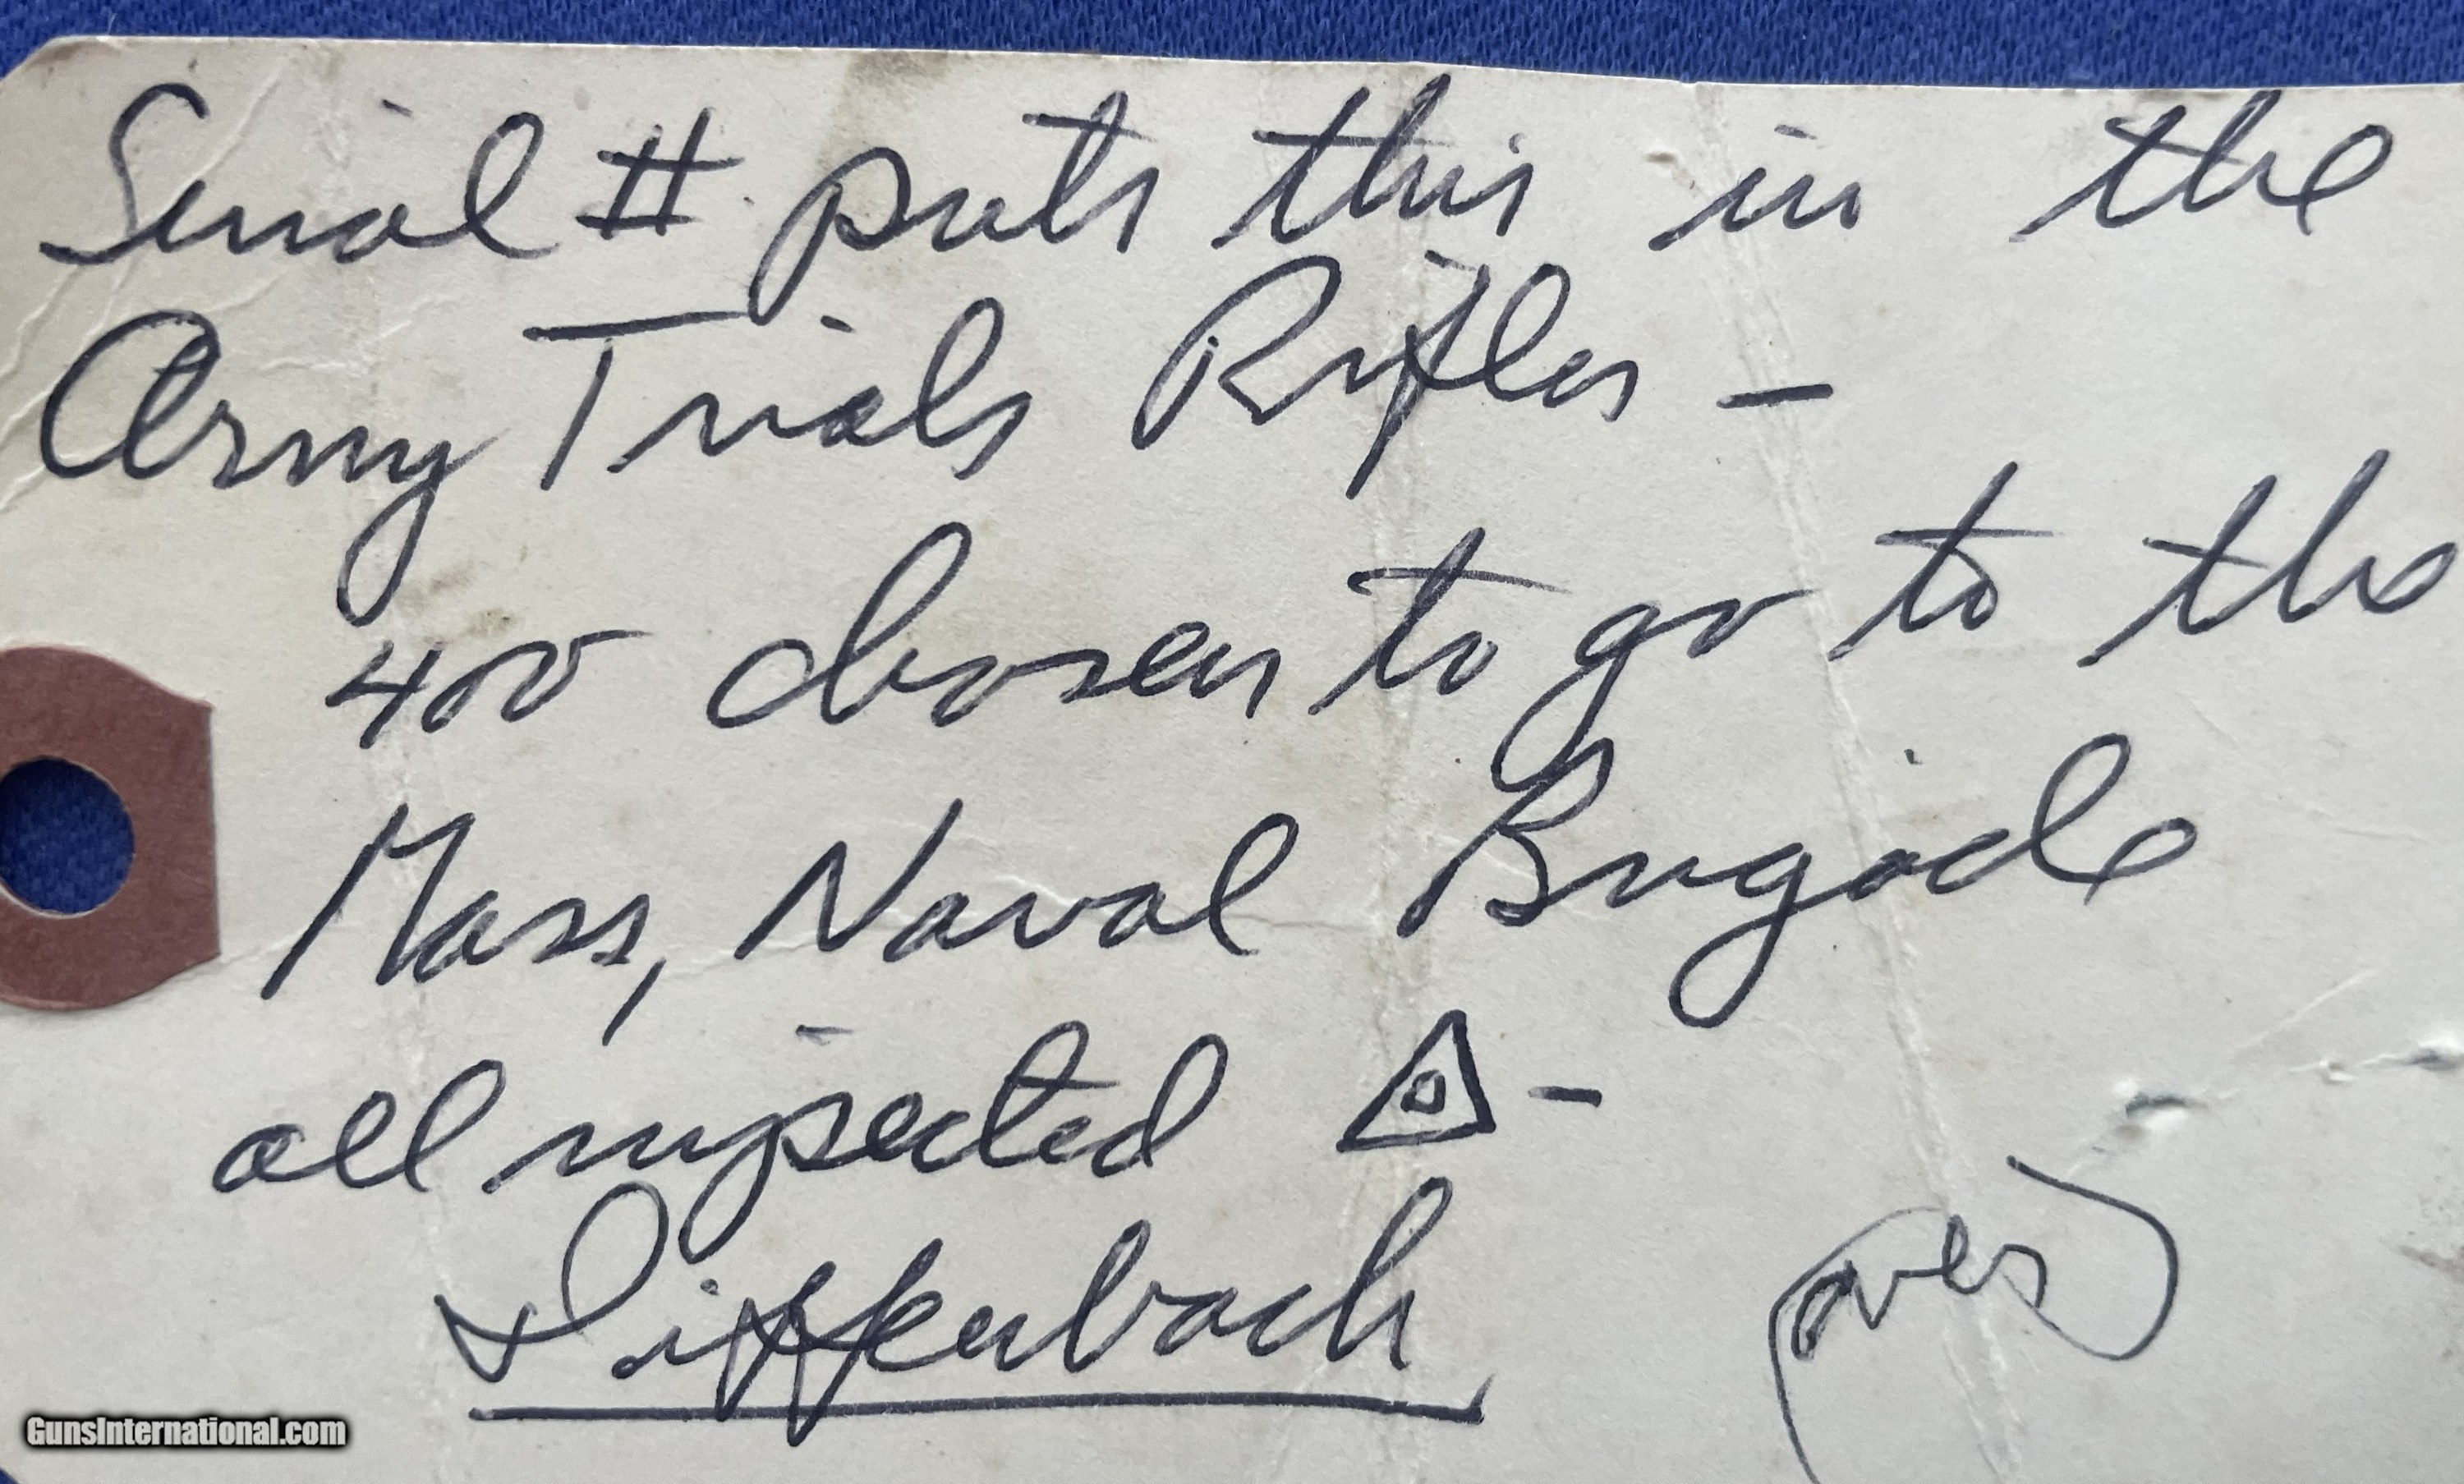 Serial # puts this in the
Army Trials Rifles –
400 chosen to go to the
Mass, Naval Brigade
all inspected △ –
Diffenbach
(over)
GunsInternational.com